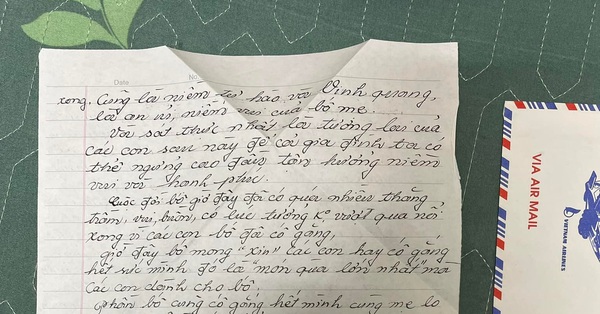 Date
No
xong. Cũng là niềm tự hào và Vinh quang,
là an ủi, niềm vui của bố mẹ.
Và sát thực nhất là tương lai của
các con sau này để cả gia đình ta có
thể ngửng cao đầu tận hưởng niềm
vui và hạnh phúc.
Cuộc đời bố giờ đây đã có quá nhiều thăng
trầm, vui, buồn, có lúc tưởng ko vượt qua nổi
xong vì các con bố đã cố gắng,
giờ đây bố mong "xin" các con hãy cố gắng
hết sức mình đó là món quà lớn nhất mà
các con dành cho bố.
Phần bố cũng cố gắng hết mình cùng mẹ lo
VIA AIR MAIL
VIETNAM AIRLINES